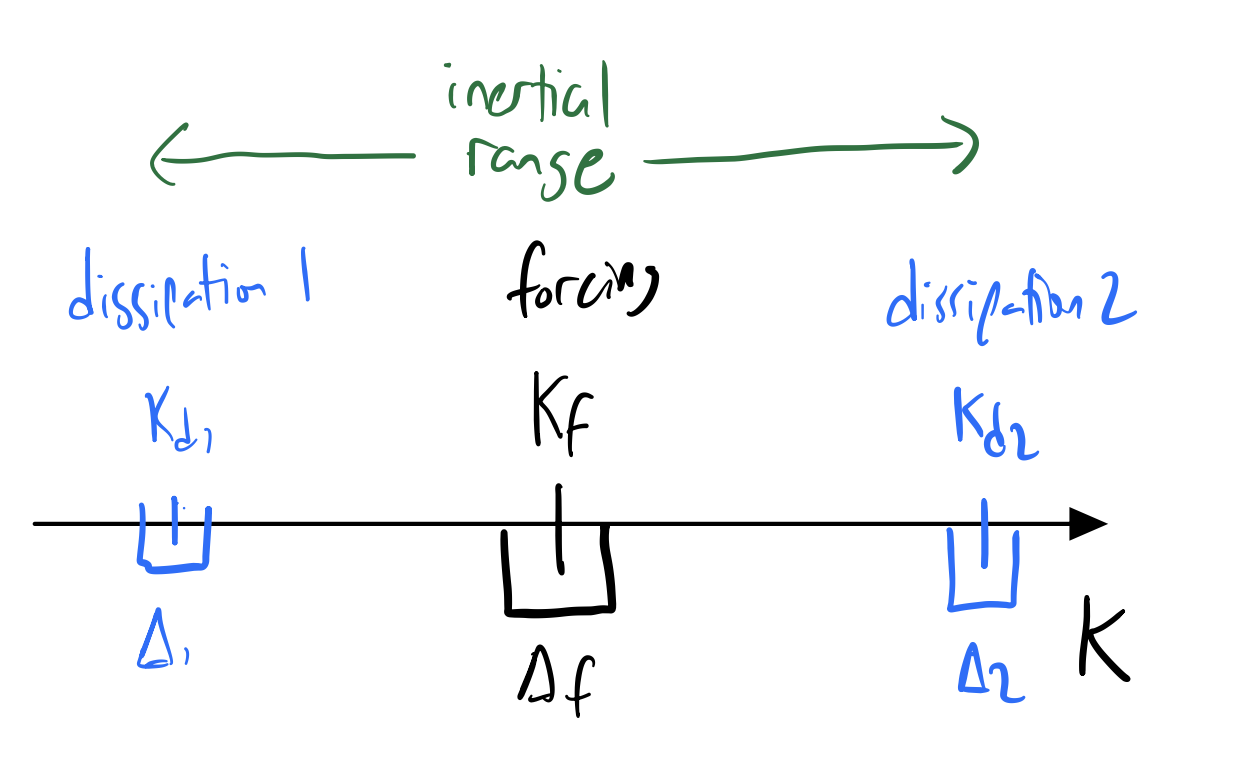 inertial
range
dissipation 1
forcing
dissipation 2
Kd1
Kf
Kd2
Δ1
Δf
Δ2
K